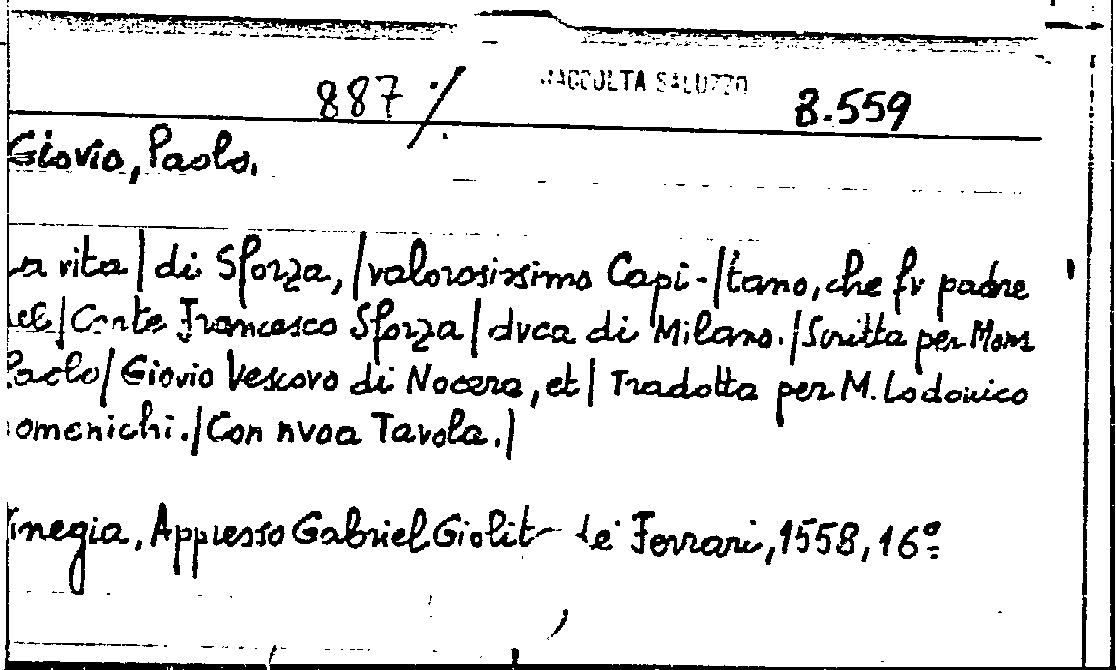 887 / RACCOLTA SALUZZO 8.559
Giovio, Paolo.
La vita | di Sforza, | valorosissimo Capi-|tano, che fv padre
del | Conte Francesco Sforza | dvca di Milano. | Scritta per Mons
Paolo | Giovio Vescovo di Nocera, et | Tradotta per M. Lodovico
omenichi. | Con nvoa Tavola. |
Vinegia, Appresso Gabriel Giolit de' Ferrari, 1558, 16º